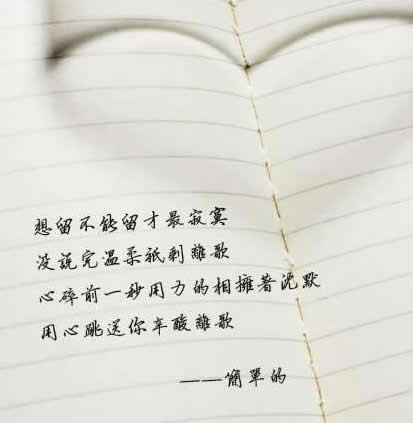 想留不能留才最寂寞
没說完温柔祇剩離歌
心碎前一秒用力的相擁著沈默
用心跳送你辛酸離歌
——簡單的